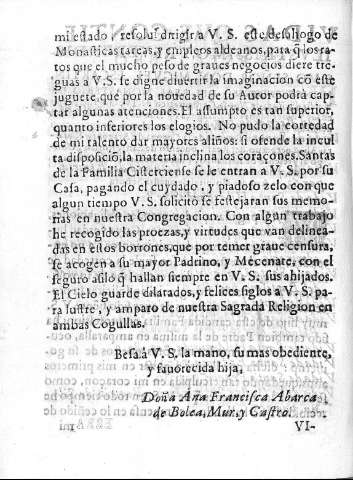 mi estado, resolui dirigir a V. S. este desahogo de
Monasticas tareas, y empleos aldeanos, para q̃ los ra-
tos que el mucho peso de graues negocios diere tre-
guas a V. S. se digne diuertir la imaginacion cõ este
juguete, que por la nouedad de su Autor podrà cap-
tar algunas atenciones. El assumpto es tan superior,
quanto inferiores los elogios. No pudo la cortedad
de mi talento dar mayores aliños: si ofende la incul
ta disposiciõ, la materia inclina los coraçones. Santas
de la Familia Cisterciense se le entran a V. S. por su
Casa, pagando el cuydado, y piadoso zelo con que
algun tiempo V. S. solicitò se festejaran sus memo-
rias en nuestra Congregacion. Con algun trabajo
he recogido las proezas, y virtudes que van delinea-
das en estos borrones, que por temer graue censura,
se acogen a su mayor Padrino, y Mecenate, con el
seguro asilo q̃ hallan siempre en V. S. sus ahijados.
El Cielo guarde dilatados, y felices siglos a V. S. pa-
ra lustre, y amparo de nuestra Sagrada Religion en
ambas Cogullas.
Besa à V. S. la mano, su mas obediente,
y fauorecida hija,
Doña Ana Francisca Abarca
de Bolea, Mur, y Castro.
VI-